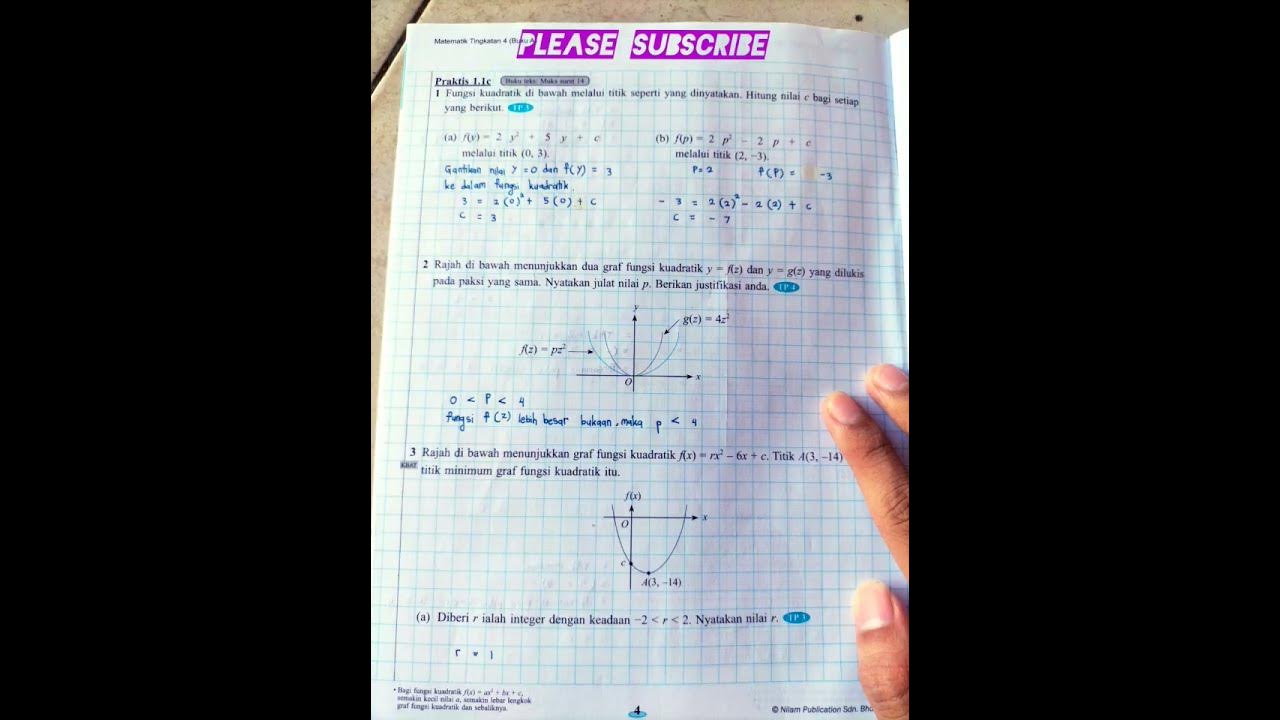 Matematik Tingkatan 4 (Buku A
PLEASE SUBSCRIBE
Praktis 1.1c Buku teks: Muka surat 14
1 Fungsi kuadratik di bawah melalui titik seperti yang dinyatakan. Hitung nilai c bagi setiap
yang berikut. TP 3
(a) f(y) = 2 y² + 5 y + c
melalui titik (0, 3).
Gantikan nilai y = 0 dan f(y) = 3
ke dalam fungsi kuadratik.
3 = 2(0)² + 5(0) + c
c = 3
(b) f(p) = 2 p² – 2 p + c
melalui titik (2, –3).
P = 2 f(P) = -3
- 3 = 2(2)² - 2(2) + c
c = - 7
2 Rajah di bawah menunjukkan dua graf fungsi kuadratik y = f(z) dan y = g(z) yang dilukis
pada paksi yang sama. Nyatakan julat nilai p. Berikan justifikasi anda. TP 4
y
g(z) = 4z²
f(z) = pz²
O
x
0 < P < 4
fungsi f(z) lebih besar bukaan, maka p < 4
3 Rajah di bawah menunjukkan graf fungsi kuadratik f(x) = rx² – 6x + c. Titik A(3, –14)
KBAT titik minimum graf fungsi kuadratik itu.
f(x)
O
x
c
A(3, –14)
(a) Diberi r ialah integer dengan keadaan –2 < r < 2. Nyatakan nilai r. TP 3
r = 1
• Bagi fungsi kuadratik f(x) = ax² + bx + c,
semakin kecil nilai a, semakin lebar lengkok
graf fungsi kuadratik dan sebaliknya.
4
© Nilam Publication Sdn. Bhd